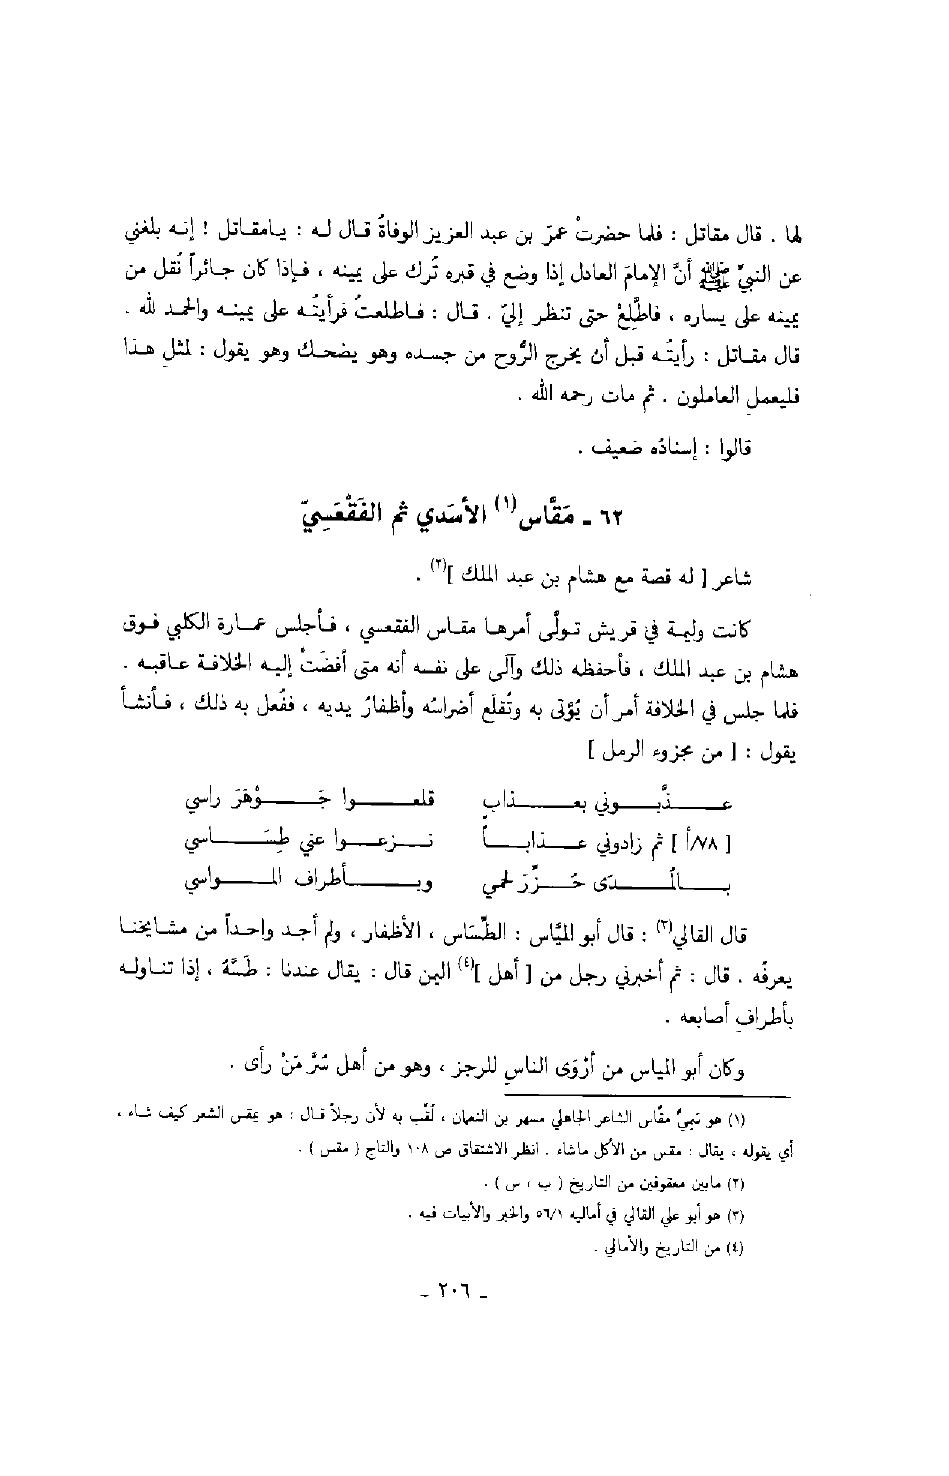 لها . قال مقاتل : فلما حضرتْ عمرَ بن عبد العزيز الوفاةُ قال له : يامقاتل ! إنه بلغني
عن النبيِّ ﷺ أنَّ الإمامَ العادل إذا وضع في قبره تُرك على يمينه ، فإذا كان جائراً نُقل من
يمينه على يساره ، فاطَّلِعْ حتى تنظر إليّ . قال : فاطلعتُ فرأيتُه على يمينه والحمد لله .
قال مقاتل : رأيتُه قبل أن يخرج الرُّوح من جسده وهو يضحك وهو يقول : لمثل هذا
فليعمل العاملون . ثم مات رحمه الله .
قالوا : إسنادُه ضعيف .
٦٢ ـ مَقَّاس(١) الأسَدي ثم الفَقْعَسِيّ
شاعر [ له قصة مع هشام بن عبد الملك ](٢) .
كانت وليمة في قريش تولَّى أمرها مقاس الفقعسي ، فأجلس عمارة الكلبي فوق
هشام بن عبد الملك ، فأحفظه ذلك وآلى على نفسه أنه متى أفضَتْ إليه الخلافة عاقبه .
فلما جلس في الخلافة أمر أن يُؤتى به وتُقلَع أضراسُه وأظفارُ يديه ، ففُعل به ذلك ، فأنشأ
يقول : [ من مجزوء الرمل ]
عذَّبوني بعذابٍ قلعوا جَوْهَرَ راسي
[ ٧٨/أ ] ثم زادوني عذاباً نزعوا عني طِسَاسي
بالمُدَى حُزِّزَ لحمي وبأطراف المواسي
قال القالي(٣) : قال أبو الميَّاس : الطِّسَاس ، الأظفار ، ولم أجد واحداً من مشايخنا
يعرفُه . قال : ثم أخبرني رجل من [ أهل ](٤) اليمن قال : يقال عندنا : طَسَّهُ ، إذا تناوله
بأطرافِ أصابعه .
وكان أبو المياس من أرْوَى الناسِ للرجز ، وهو من أهل سُرَّ مَنْ رأى .
(١) هو سَمِيُّ مقَّاس الشاعر الجاهلي مسهر بن النعمان ، لقّب به لأن رجلاً قال : هو يمقس الشعر كيف شاء ،
أي يقوله ، يقال : مقس من الأكل ماشاء . انظر الاشتقاق ص ١٠٨ والتاج ( مقس ) .
(٢) مابين معقوفين من التاريخ ( ب ، س ) .
(٣) هو أبو علي القالي في أماليه ٥٦/١ والخبر والأبيات فيه .
(٤) من التاريخ والأمالي .
ـ ٢٠٦ ـ